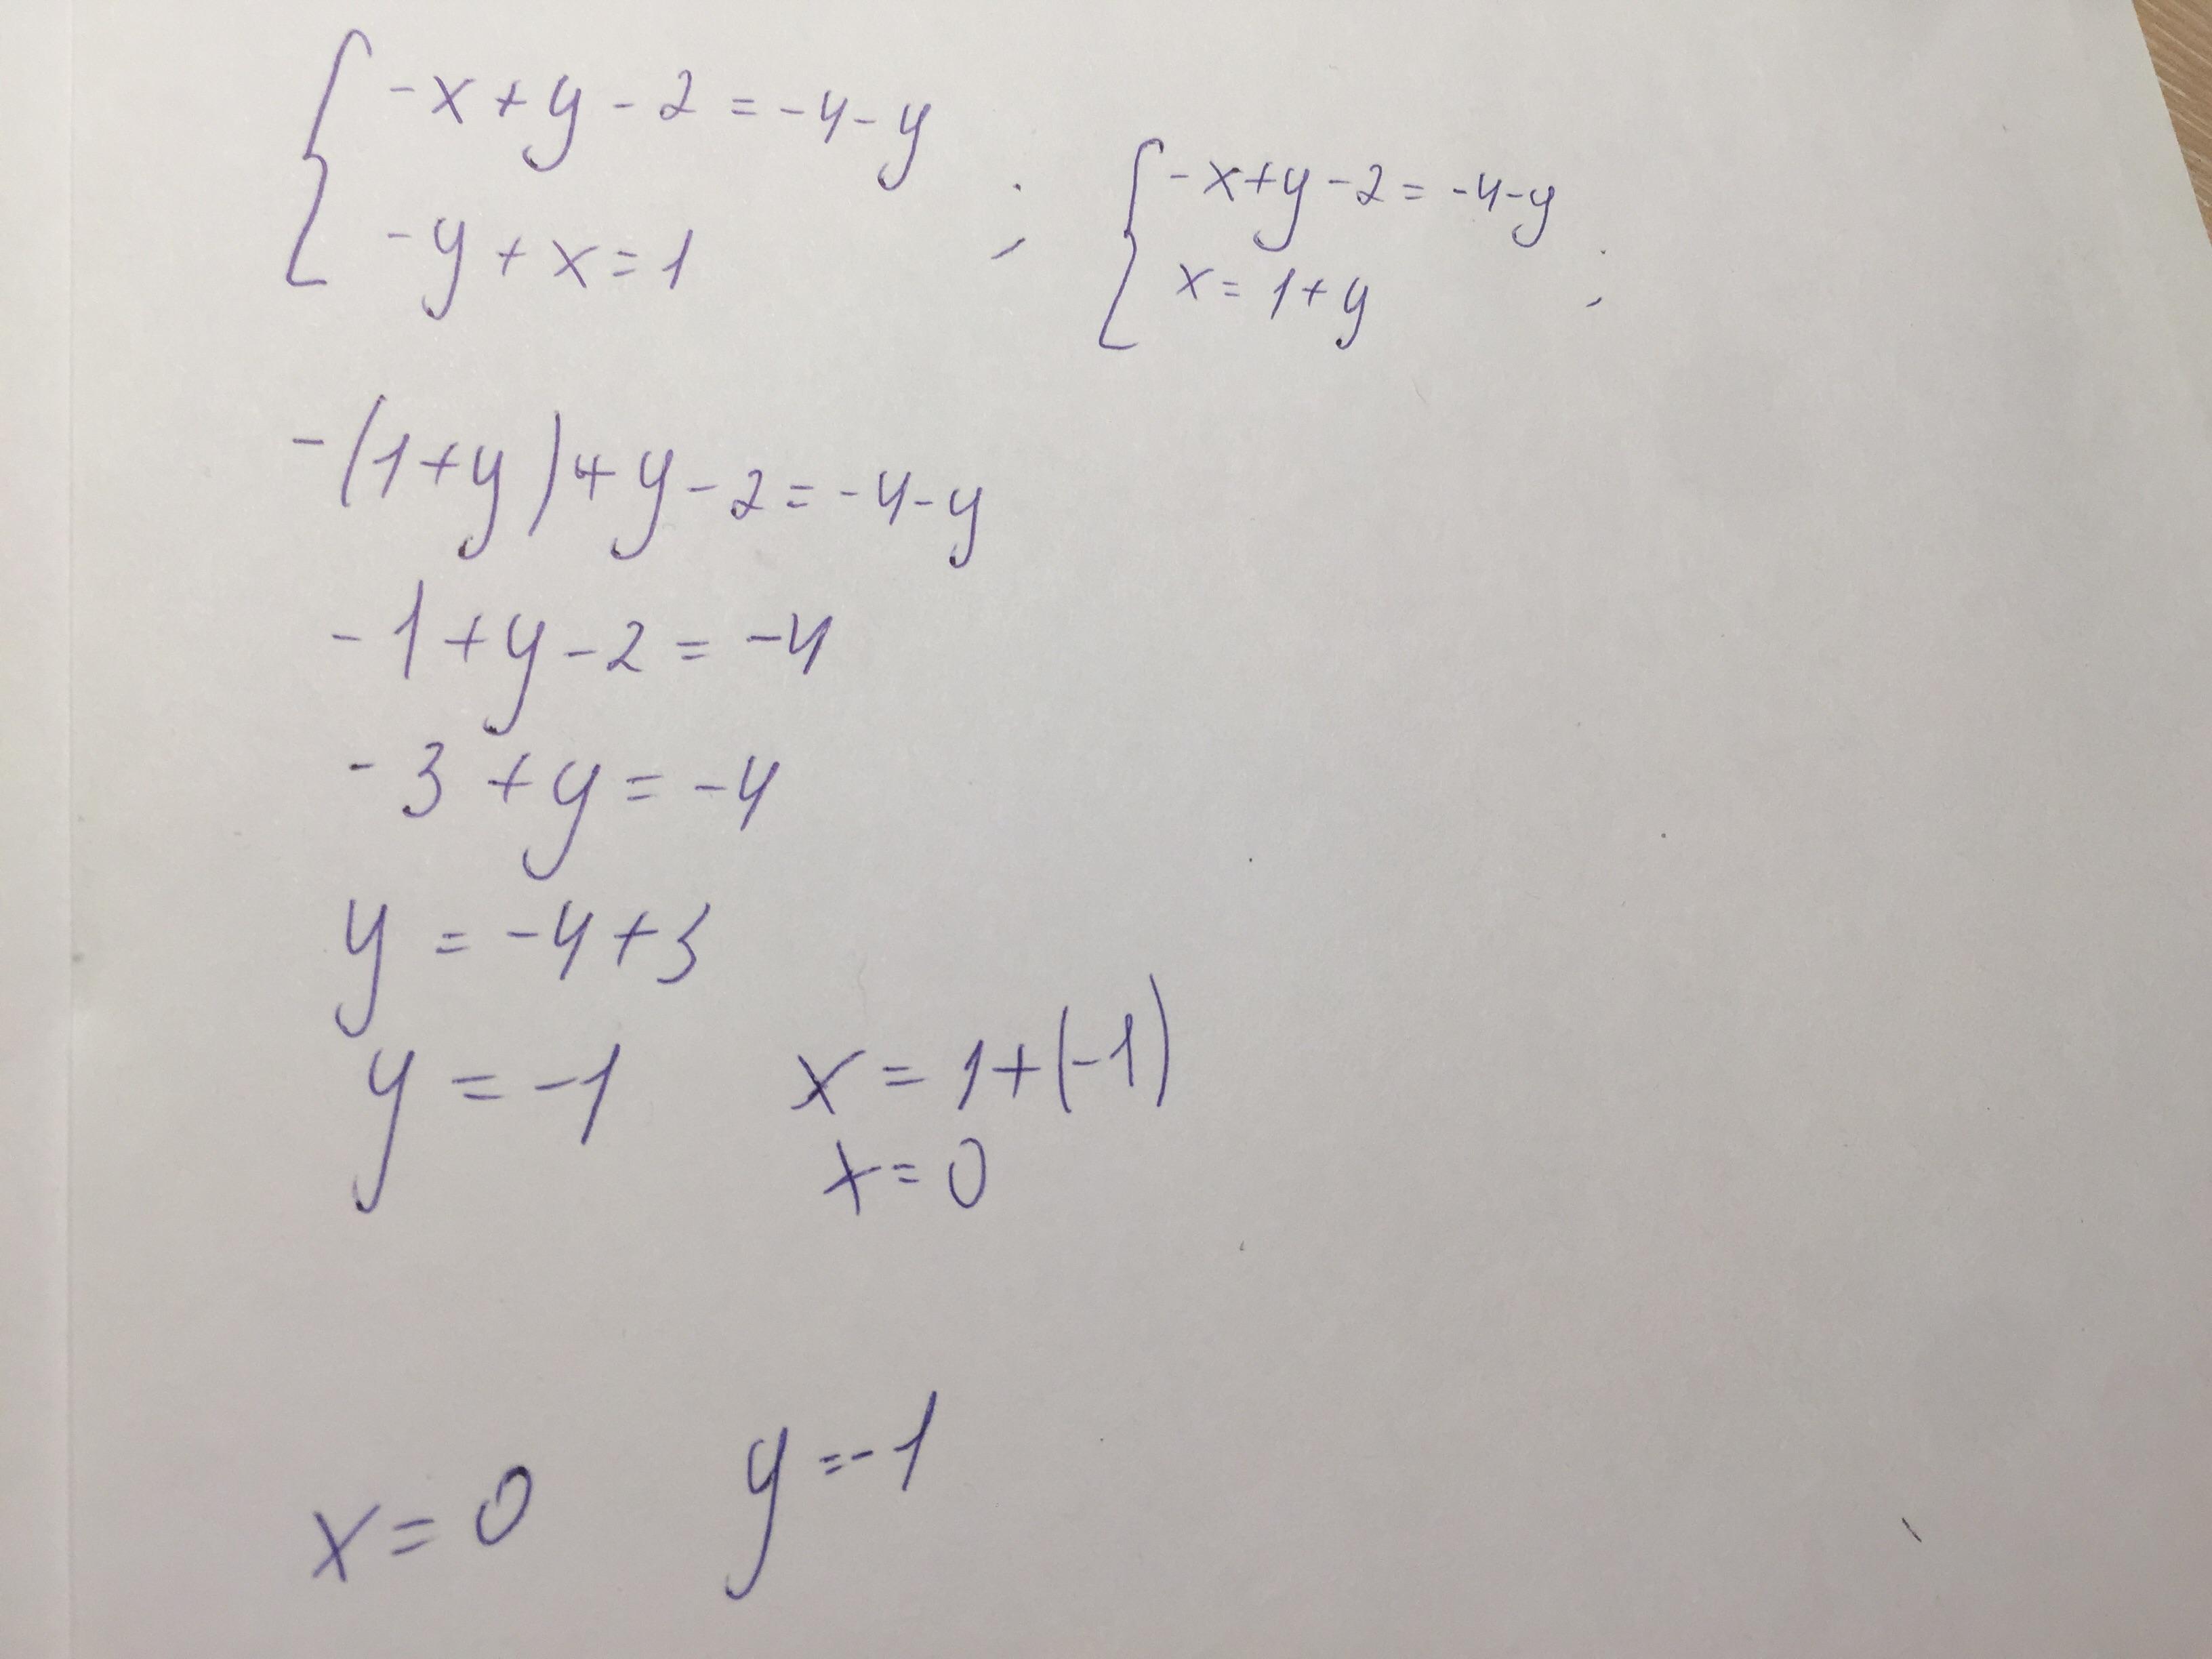 { -x+y-2=-4-y
-y+x=1 ;
{ -x+y-2=-4-y
x=1+y ;
-(1+y)+y-2=-4-y
-1+y-2=-4
-3+y=-4
y=-4+3
y=-1 x=1+(-1)
x=0
x=0 y=-1